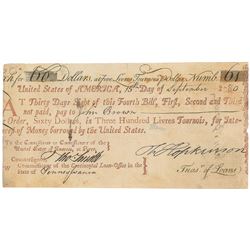 for 60 Dollars, at five Livres Tournois Dollar, Numb 61
United States of AMERICA, 15th Day of September
AT Thirty Days Sight of this Fourth Bill, First, Second and Third
not paid, pay to John Brown
Order, Sixty Dollars, in Three Hundred Livres Tournois, for Interest
of Money borrowed by the United States.
To the Commissioner or Commissioners of the
United States of America, at Paris.
Countersigned Tho Smith
Commissioner of the Continental Loan-Office in the
State of Pennsylvania
F Hopkinson
Treas. of Loans